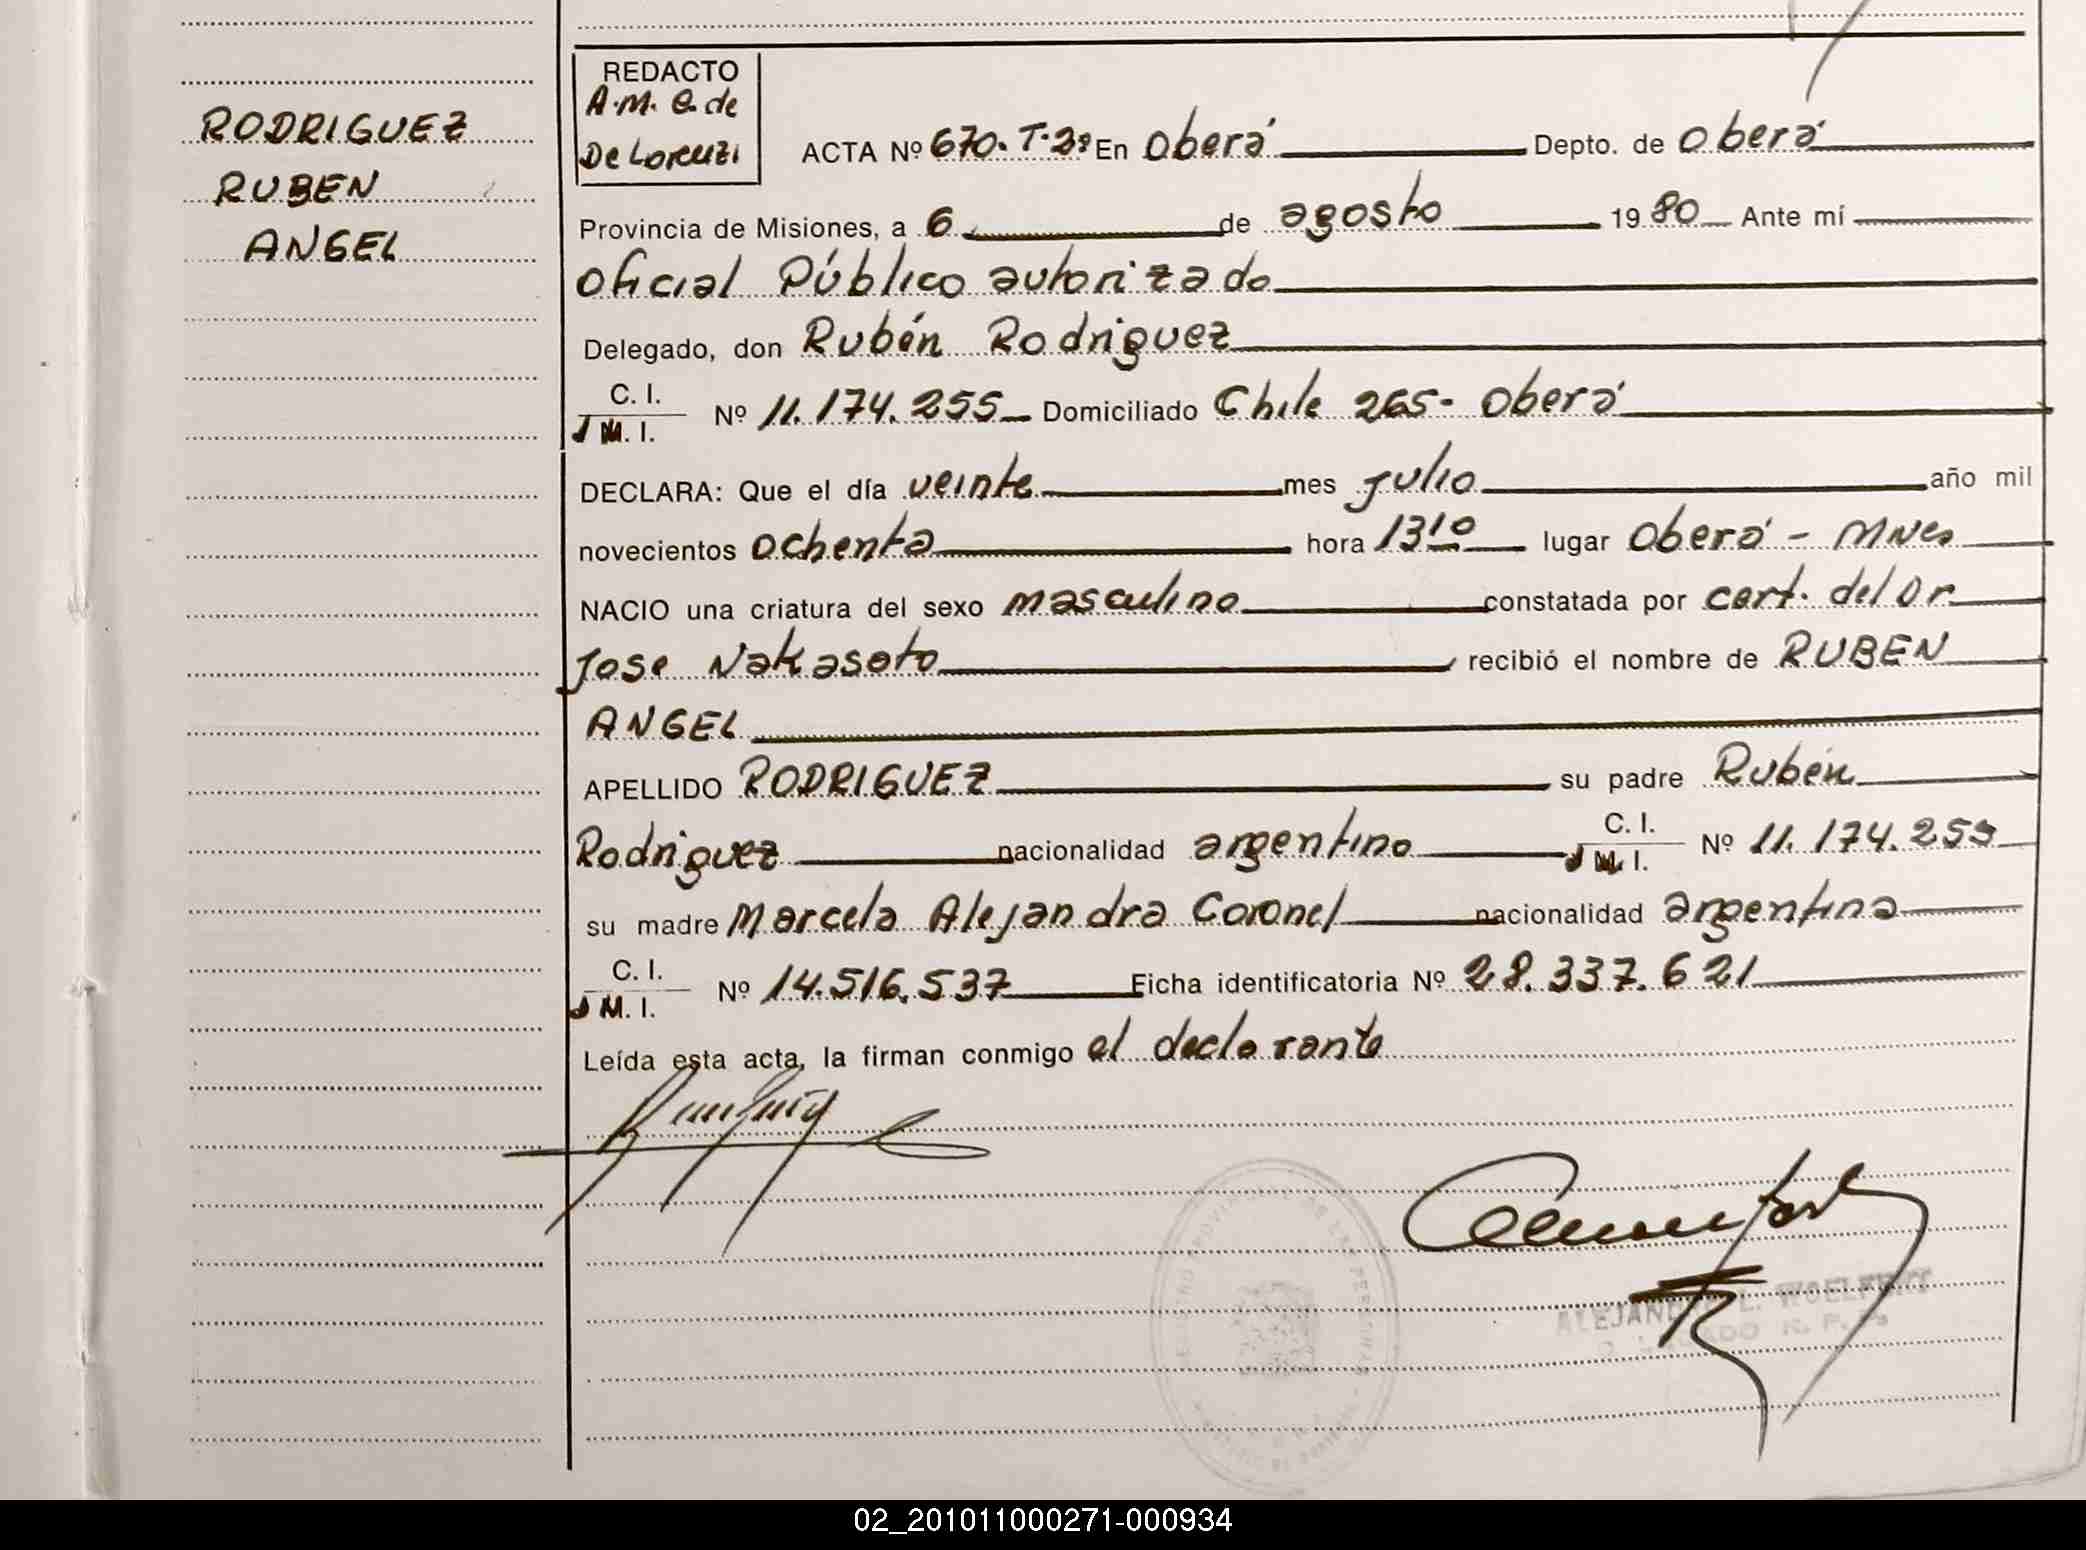 RODRIGUEZ
RUBEN
ANGEL
REDACTO
A.M. C. de
De Lorenzi
ACTA Nº 670. T.2º En Oberá Depto. de Oberá
Provincia de Misiones, a 6 de agosto 1980 Ante mí
Oficial Público autorizado
Delegado, don Rubén Rodriguez
C. I.
M. I. Nº 11.174.255 Domiciliado Chile 265- Oberá
DECLARA: Que el día veinte mes julio año mil
novecientos ochenta hora 13¹⁰ lugar Oberá - Mnes
NACIO una criatura del sexo masculino constatada por cert. del Dr
Jose Nakasato recibió el nombre de RUBEN
ANGEL
APELLIDO RODRIGUEZ su padre Rubén
Rodriguez nacionalidad argentino C. I.
M. I. Nº 11.174.255
su madre Marcela Alejandra Coronel nacionalidad argentina
C. I.
M. I. Nº 14.516.537 Ficha identificatoria Nº 28.337.621
Leída esta acta, la firman conmigo el declarante
ALEJANDRO L. WOELFERT
02_201011000271-000934